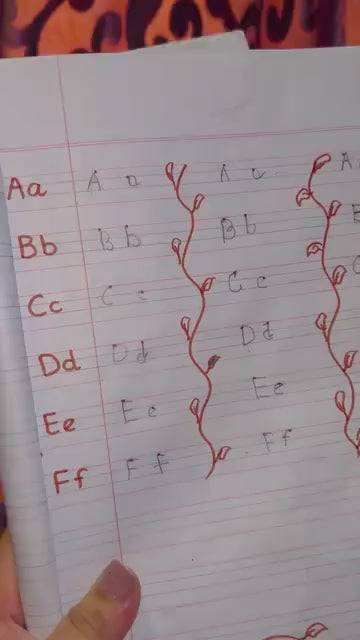 Aa A a A a A
Bb B b B b B
Cc C c C c C
Dd D d D d
Ee E e E e
Ff F f F f